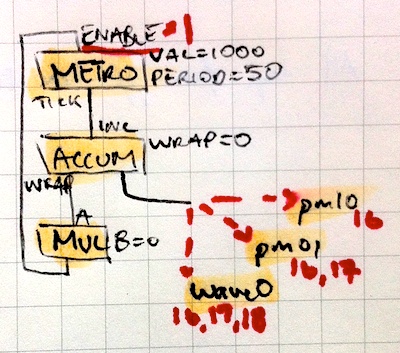 ENABLE 1
METRO VAL=1000
PERIOD=50
TICK
INC
ACCUM WRAP=0
WRAP
A
MUL B=0
pm10
16
pm01
16,17
wave0
16,17,18